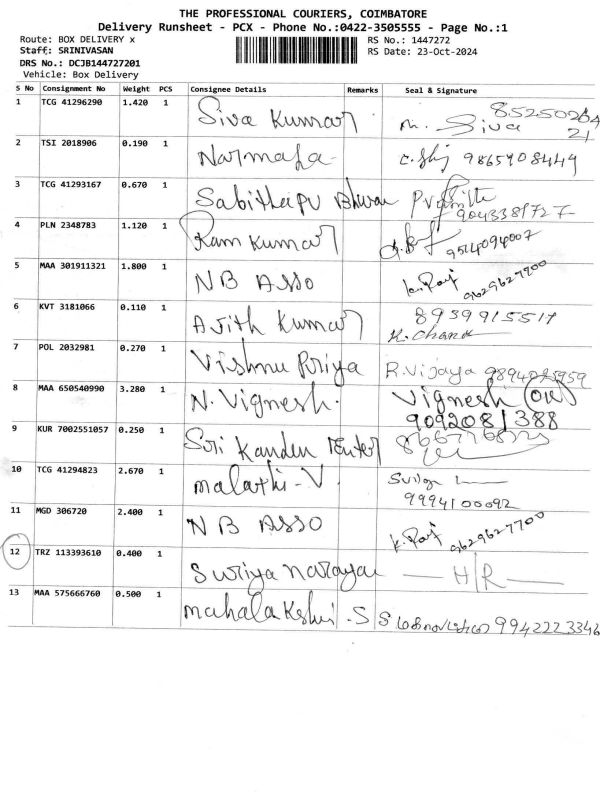 THE PROFESSIONAL COURIERS, COIMBATORE
Delivery Runsheet - PCX - Phone No.:0422-3505555 - Page No.:1
Route: BOX DELIVERY x
RS No.: 1447272
Staff: SRINIVASAN
RS Date: 23-Oct-2024
DRS No.: DCJB144727201
Vehicle: Box Delivery
S No Consignment No Weight PCS Consignee Details Remarks Seal & Signature
1 TCG 41296290 1.420 1 Siva Kumar m. Siva
2 TSI 2018906 0.190 1 9865908449
3 TCG 41293167 0.670 1 9043381727
4 PLN 2348783 1.120 1 Ram Kumar 9514094007
5 MAA 301911321 1.800 1 NB Asso K. Raj 9629627700
6 KVT 3181066 0.110 1 Ajith Kumar 8939915517
K. Chand
7 POL 2032981 0.270 1 Vishnu Priya R. Vijaya
8 MAA 650540990 3.280 1 N. Vignesh. Vignesh
9092081388
9 KUR 7002551057 0.250 1 Sri Kanden
10 TCG 41294823 2.670 1 Malathi - V
9994100092
11 MGD 306720 2.400 1 NB Asso K. Raj 9629627700
12 TRZ 113393610 0.400 1 Suriya Narayan H/R
13 MAA 575666760 0.500 1 Mahalakshmi . S 9942223346